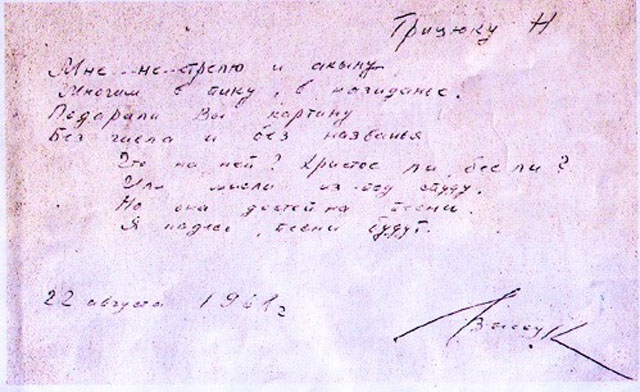 Грицюку Н
Мне не-стрелю и акыну
Многим в пику, в назиданье.
Подарили Вы картину
Без числа и без названья
Что на ней? Христос ли, бес ли?
Или мысли из-под спуду.
Но она достойна песни.
Я надеюсь, песни будут.
22 августа 1968г